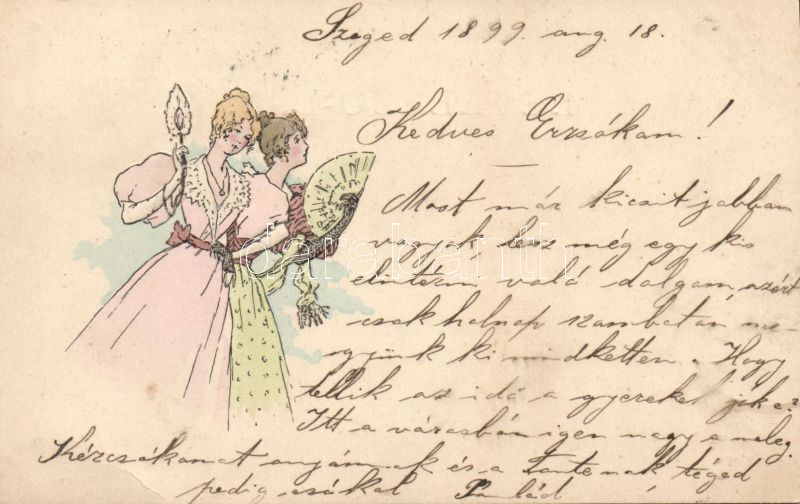 Szeged 1899. aug. 18.
Kedves Erzsókám!
Most már kicsit jobban
vagyok, lesz még egy kis
elintézni való dolgom, azért
csak holnap szombaton me-
gyünk ki mindketten. Hogy
telik az idő a gyerekek
Itt a városban igen nagy a meleg.
Kézcsókomat anyámnak és a Tantenak téged
pedig csókol
darabanth